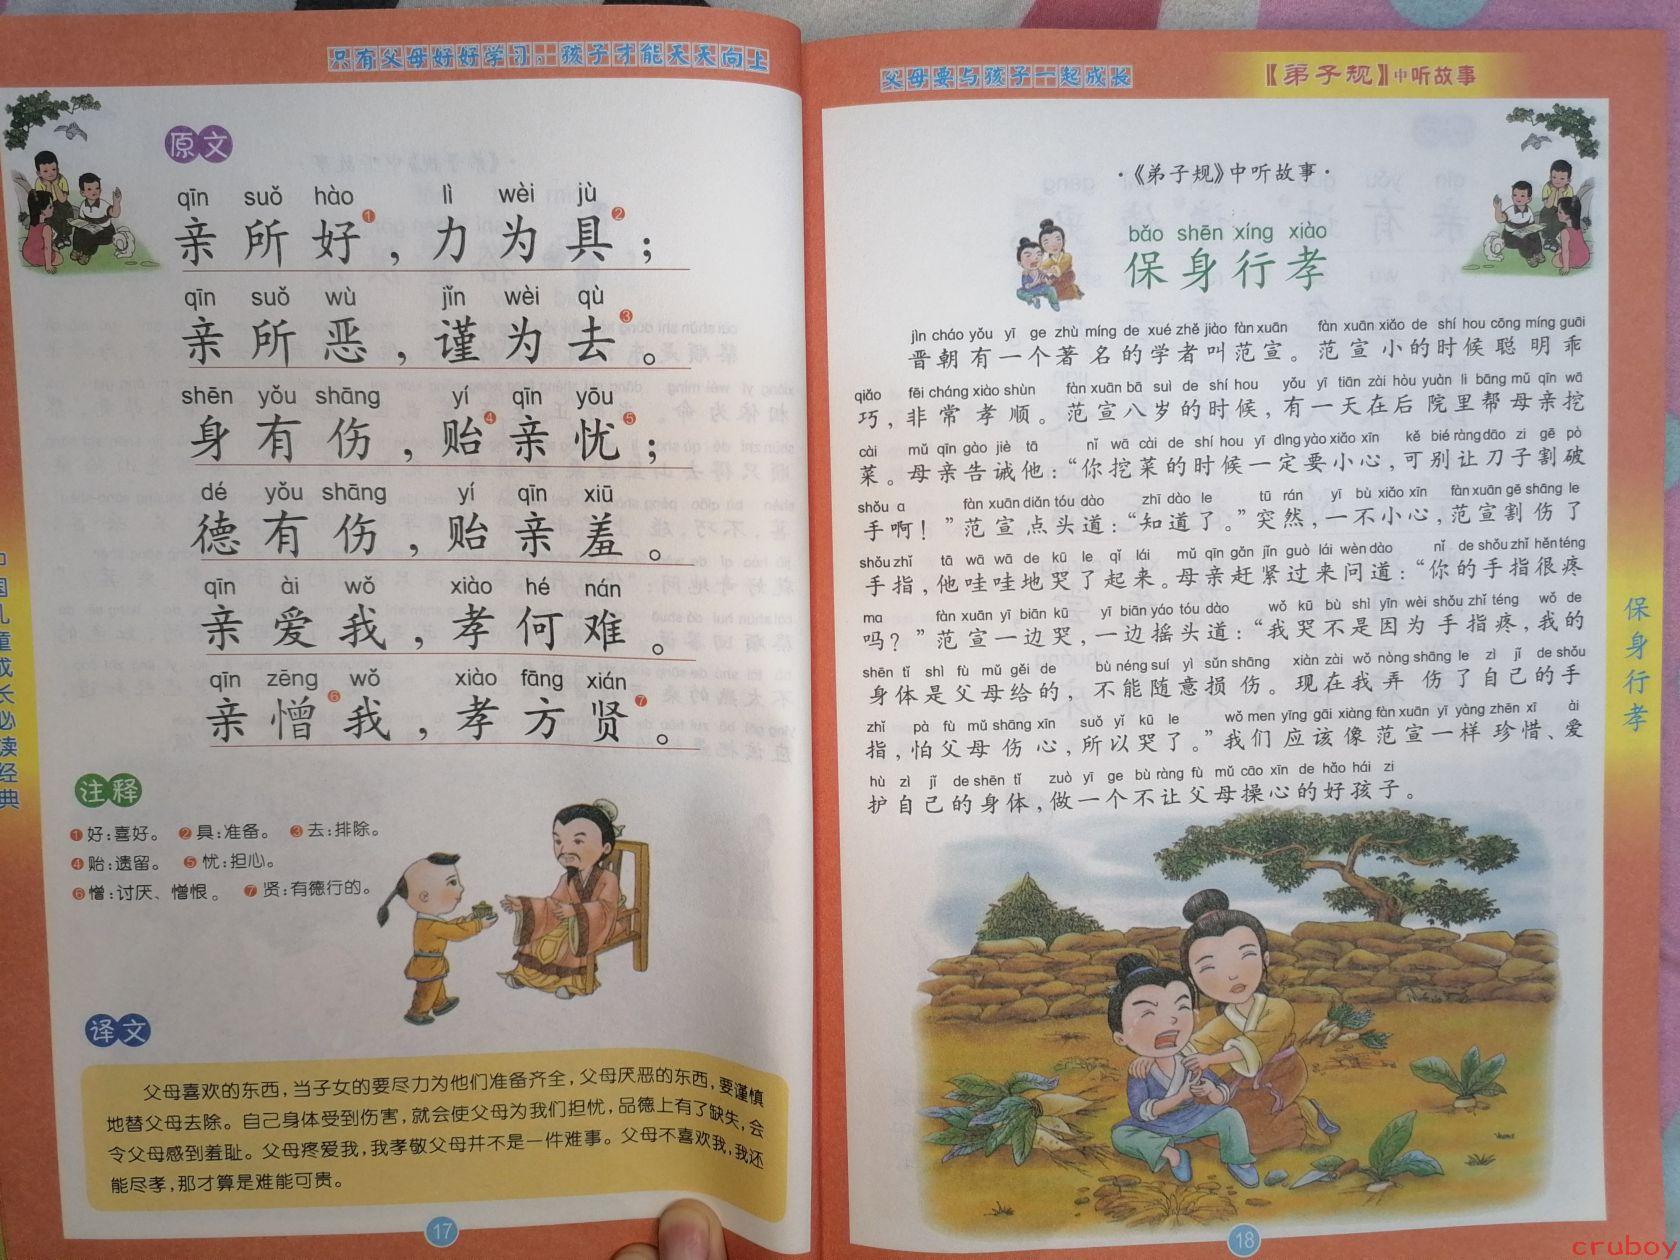 只有父母好好学习，孩子才能天天向上
原文
qīn suǒ hào lì wèi jù
亲所好❶，力为具❷；
qīn suǒ wù jǐn wèi qù
亲所恶，谨为去❸。
shēn yǒu shāng yí qīn yōu
身有伤，贻❹亲忧❺；
dé yǒu shāng yí qīn xiū
德有伤，贻亲羞。
qīn ài wǒ xiào hé nán
亲爱我，孝何难。
qīn zēng wǒ xiào fāng xián
亲憎❻我，孝方贤❼。
注释
❶好：喜好。 ❷具：准备。 ❸去：排除。
❹贻：遗留。 ❺忧：担心。
❻憎：讨厌、憎恨。 ❼贤：有德行的。
译文
父母喜欢的东西，当子女的要尽力为他们准备齐全，父母厌恶的东西，要谨慎
地替父母去除。自己身体受到伤害，就会使父母为我们担忧，品德上有了缺失，会
令父母感到羞耻。父母疼爱我，我孝敬父母并不是一件难事。父母不喜欢我，我还
能尽孝，那才算是难能可贵。
17
中国儿童成长必读经典
父母要与孩子一起成长
【弟子规】中听故事
·《弟子规》中听故事·
bǎo shēn xíng xiào
保身行孝
jìn cháo yǒu yī ge zhù míng de xué zhě jiào fàn xuān fàn xuān xiǎo de shí hou cōng míng guāi
晋朝有一个著名的学者叫范宣。范宣小的时候聪明乖
qiǎo fēi cháng xiào shùn fàn xuān bā suì de shí hou yǒu yī tiān zài hòu yuàn li bāng mǔ qīn wā
巧，非常孝顺。范宣八岁的时候，有一天在后院里帮母亲挖
cài mǔ qīn gào jiè tā nǐ wā cài de shí hou yī dìng yào xiǎo xīn kě bié ràng dāo zi gē pò
菜。母亲告诫他：“你挖菜的时候一定要小心，可别让刀子割破
shǒu a fàn xuān diǎn tóu dào zhī dào le tū rán yī bù xiǎo xīn fàn xuān gē shāng le
手啊！”范宣点头道：“知道了。”突然，一不小心，范宣割伤了
shǒu zhǐ tā wā wā de kū le qǐ lái mǔ qīn gǎn jǐn guò lái wèn dào nǐ de shǒu zhǐ hěn téng
手指，他哇哇地哭了起来。母亲赶紧过来问道：“你的手指很疼
ma fàn xuān yī biān kū yī biān yáo tóu dào wǒ kū bù shì yīn wèi shǒu zhǐ téng wǒ de
吗？”范宣一边哭，一边摇头道：“我哭不是因为手指疼，我的
shēn tǐ shì fù mǔ gěi de bù néng suí yì sǔn shāng xiàn zài wǒ nòng shāng le zì jǐ de shǒu
身体是父母给的，不能随意损伤。现在我弄伤了自己的手
zhǐ pà fù mǔ shāng xīn suǒ yǐ kū le wǒ men yīng gāi xiàng fàn xuān yī yàng zhēn xī ài
指，怕父母伤心，所以哭了。”我们应该像范宣一样珍惜、爱
hù zì jǐ de shēn tǐ zuò yī ge bù ràng fù mǔ cāo xīn de hǎo hái zi
护自己的身体，做一个不让父母操心的好孩子。
保身行孝
18
cruboy